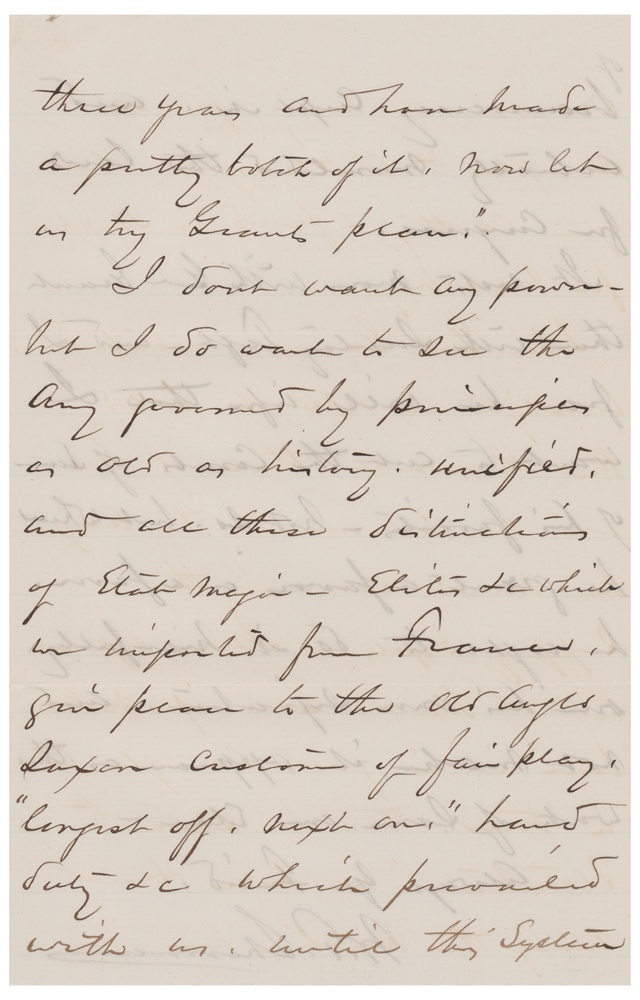 three years and have made
a pretty botch of it, now let
us try Grants plan."
I dont want any power -
but I do want to see the
Army governed by principles
as old as history. unified,
and all these distinctions
of Etat Major - Elites &c which
we imported from France,
give place to the old Anglo
Saxon custom of fair play,
"longest off, next on," hard
duty &c which prevailed
with us, until this System